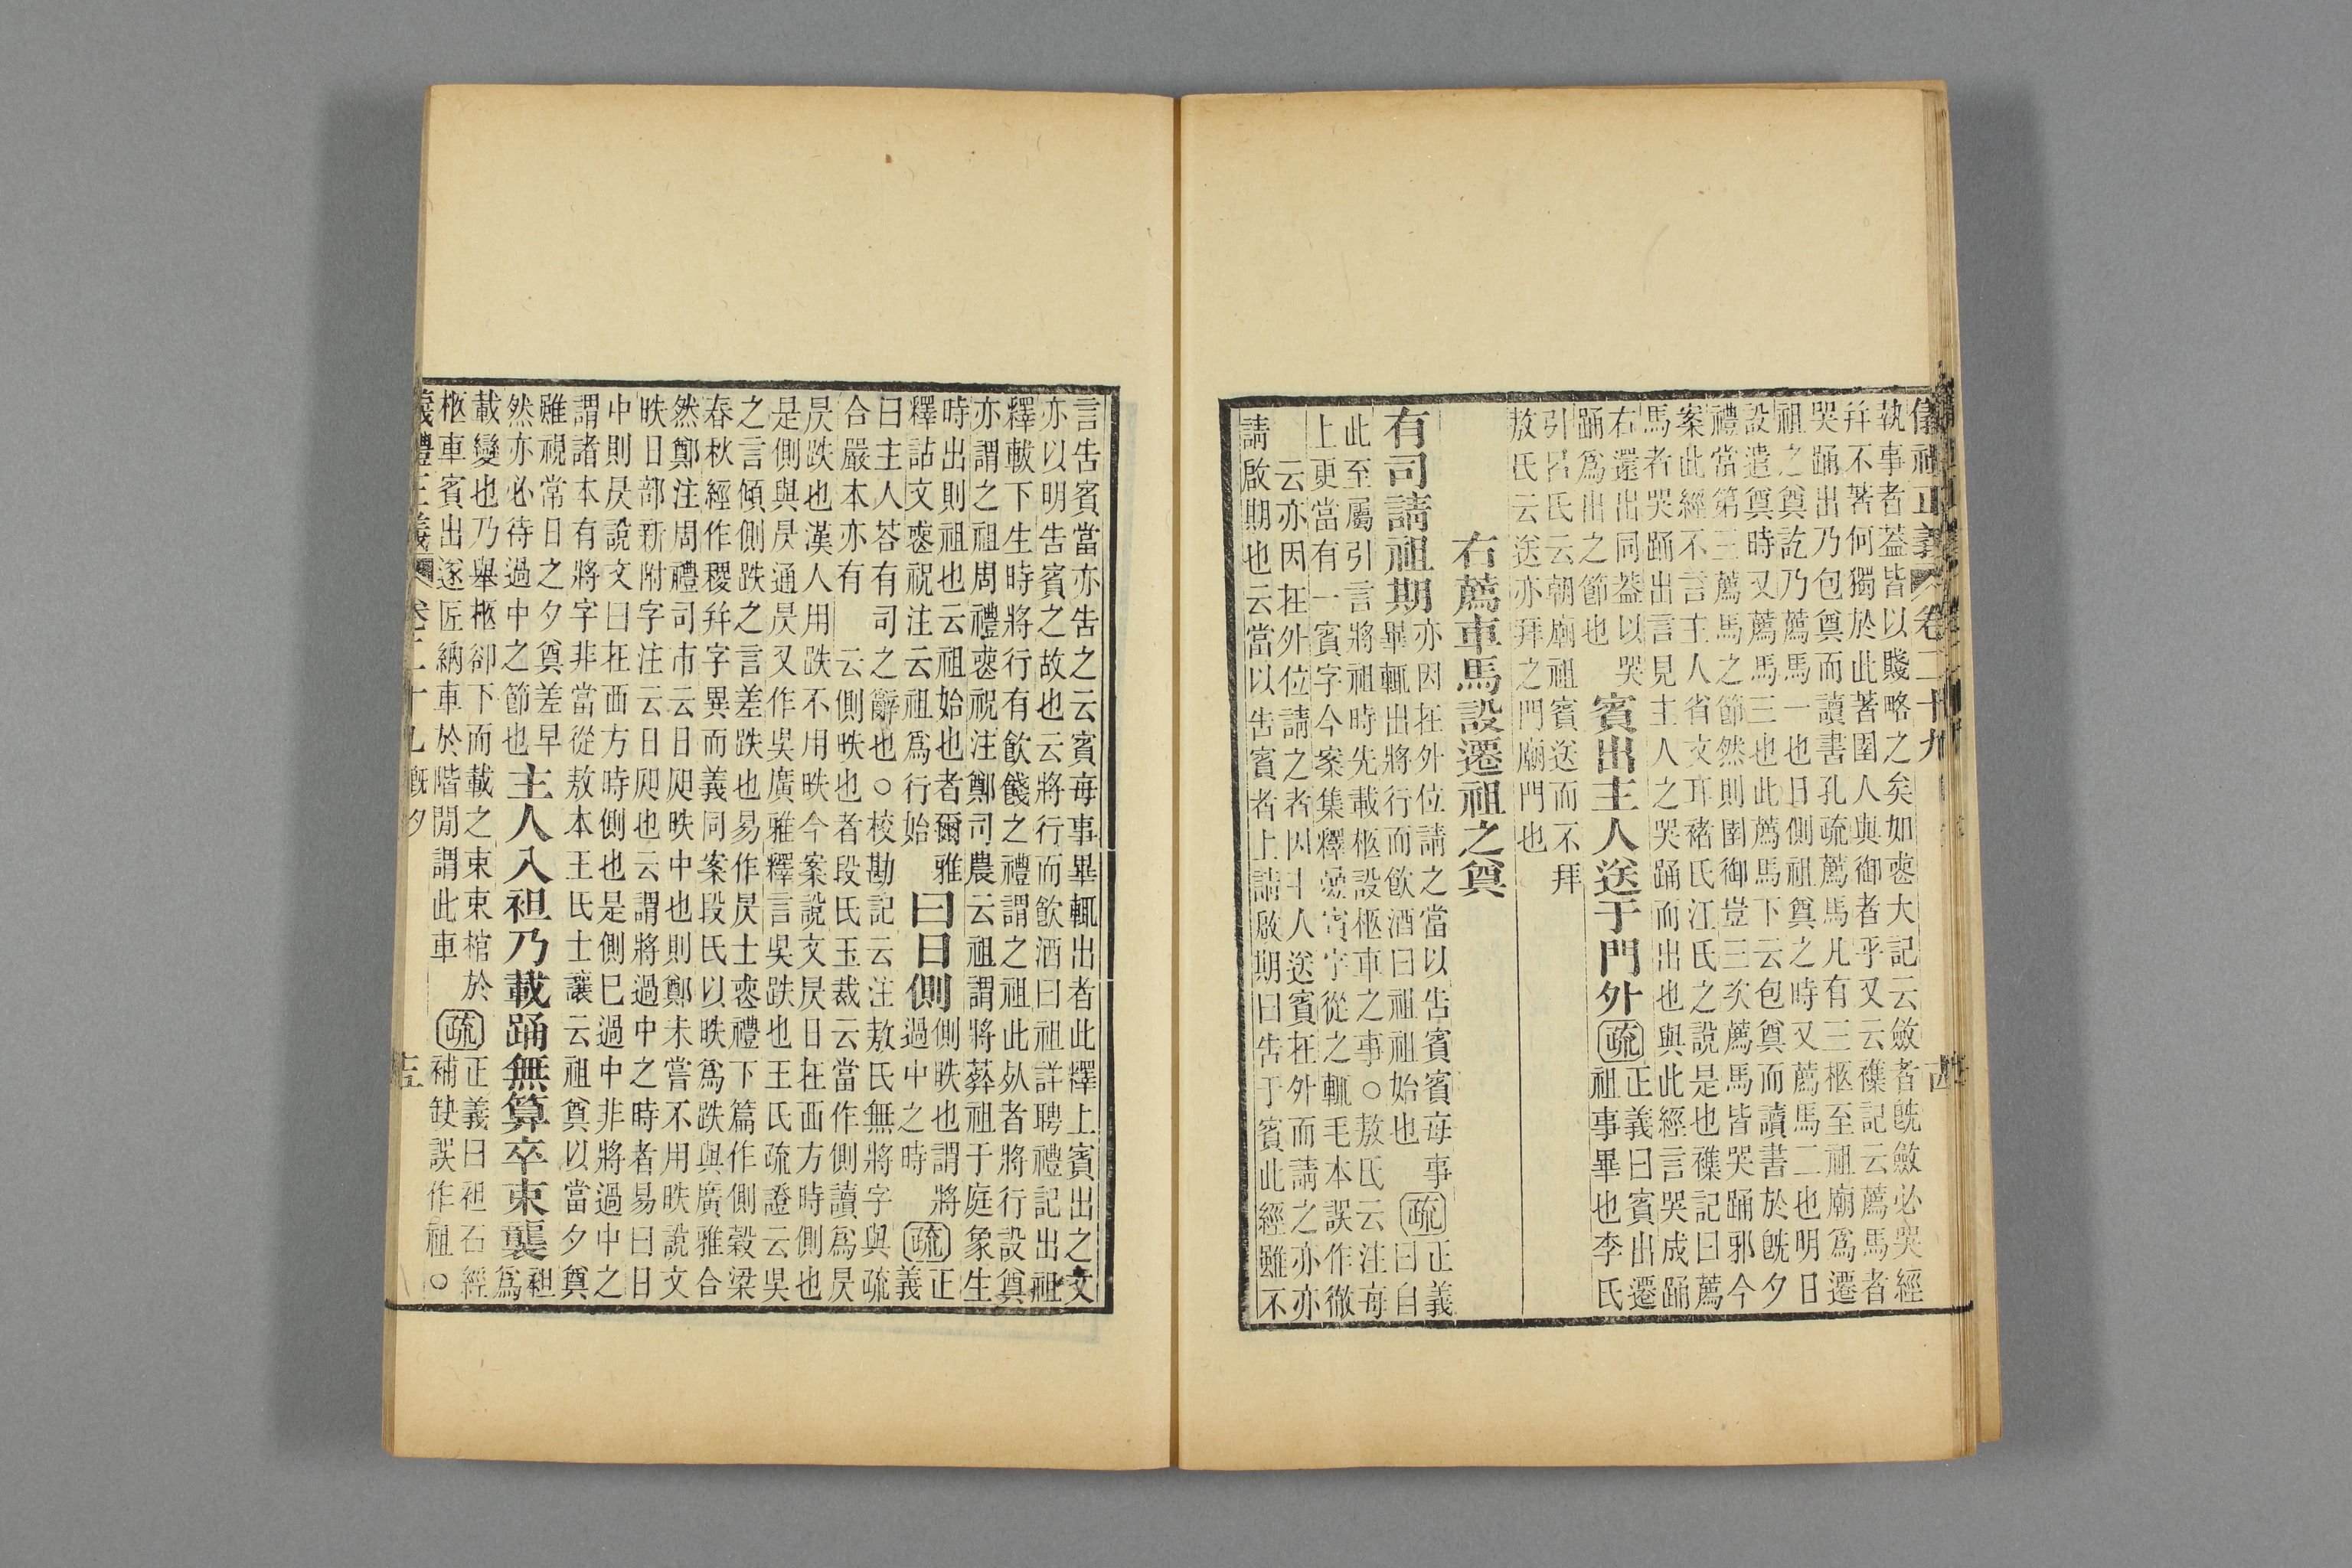 儀禮正義 卷二十九
執事者葢皆以賤略之矣如喪大記云斂者旣斂必哭經
幷不著何獨於此著圉人與御者乎又云襍記云薦馬者
哭踊出乃包奠而讀書孔疏薦馬凡有三柩至祖廟爲遷
祖之奠訖乃薦馬一也日側祖奠之時又薦馬二也明日
設遣奠時又薦馬三也此薦馬下云包奠而讀書於旣夕
禮當第三薦馬之節然則圉御豈三次薦馬皆哭踊邪今
案此經不言主人省文耳褚氏江氏之說是也襍記曰薦
馬者哭踊出言見主人之哭踊而出也與此經言哭成踊
右還出同葢以哭
踊爲出之節也
賓出主人送于門外
疏
正義曰賓出遷
祖事畢也李氏
引呂氏云朝廟祖賓送而不拜
敖氏云送亦拜之門廟門也
右薦車馬設遷祖之奠
有司請祖期
亦因在外位請之當以告賓賓每事
畢輒出將行而飮酒曰祖祖始也
疏
正義
曰自
此至屬引言將祖時先載柩設柩車之事○敖氏云注每
上更當有一賓字今案集釋疊賓字從之輒毛本誤作徹
云亦因在外位請之者因主人送賓在外而請之亦亦
請啟期也云當以告賓者上請啟期曰告于賓此經雖不
言告賓當亦告之云賓每事畢輒出者此釋上賓出之文
亦以明告賓之故也云將行而飮酒曰祖詳聘禮記出祖
釋軷下生時將行有飮餞之禮謂之祖此死者將行設奠
亦謂之祖周禮喪祝注鄭司農云祖謂將葬祖于庭象生
時出則祖也云祖始也者爾雅
釋詁文喪祝注云祖爲行始
曰日側
側昳也謂將
過中之時
疏
正
義
曰主人荅有司之辭也○校勘記云注敖氏無將字與疏
合嚴本亦有 云側昳也者段氏玉裁云當作側讀爲昃
昃跌也漢人用跌不用昳今案說文昃日在西方時側也
是側與昃通昃又作吳廣雅釋言吳跌也王氏疏證云吳
之言傾側跌之言差跌也易作昃士喪禮下篇作側穀梁
春秋經作稷幷字異而義同案段氏以昳爲跌與廣雅合
然鄭注周禮司市云日昃昳中也則鄭未嘗不用昳說文
昳日部新附字注云日昃也云謂將過中之時者易曰日
中則昃說文曰在西方時側也是側已過中非將過中之
謂諸本有將字非當從敖本王氏士讓云祖奠以當夕奠
雖視常日之夕奠差早
然亦必待過中之節也
主人入袒乃載踊無算卒束襲
袒
爲
載變也乃舉柩卻下而載之束束棺於
柩車賓出遂匠納車於階閒謂此車
疏
正義曰袒石經
補缺誤作祖○
儀禮正義 卷二十九 旣夕